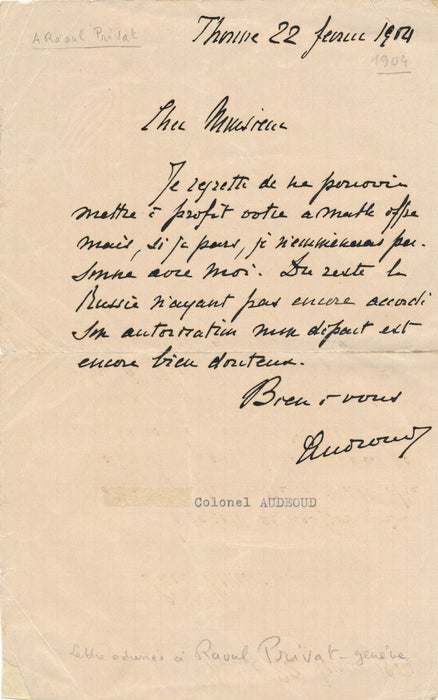 A Raoul Privat
Thoune 22 fevrier 1904
1904
Cher Monsieur
Je regrette de ne pouvoir
mettre à profit votre aimable offre
mais, si je pars, je n'emmènerai per-
sonne avec moi. Du reste la
Russie n'ayant pas encore accordé
son autorisation mon départ est
encore bien douteux.
Bien à vous
Audeoud
Colonel AUDEOUD
Lettre adressée à Raoul Privat - genève